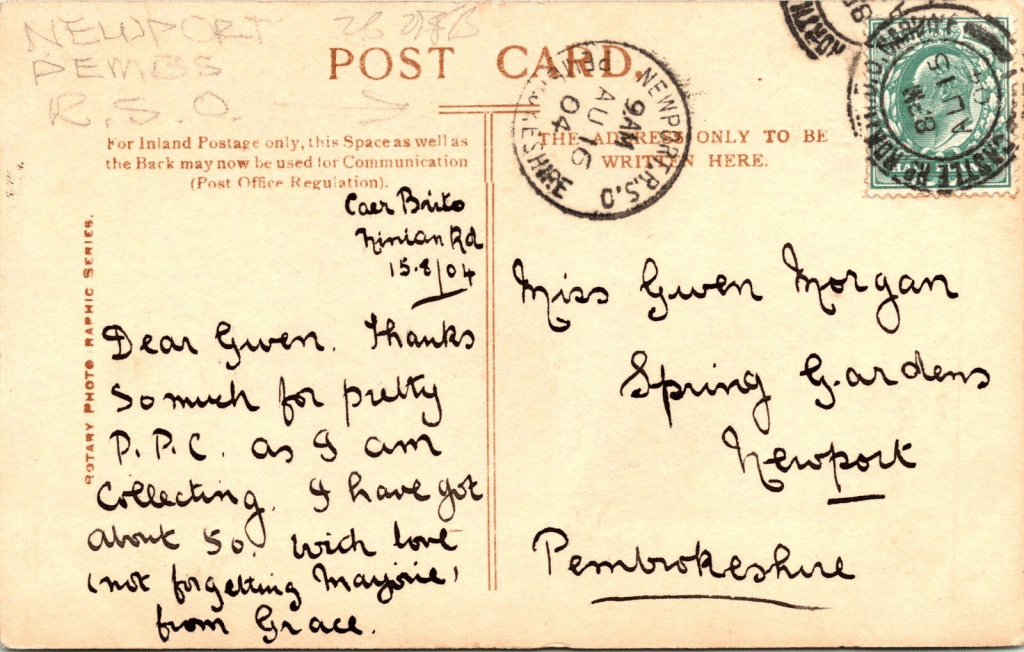 NEWPORT
PEMBS
R.S.O.
POST CARD.
For Inland Postage only, this Space as well as
the Back may now be used for Communication
(Post Office Regulation).
THE ADDRESS ONLY TO BE
WRITTEN HERE.
NEWPORT R.S.O
PEMBROKESHIRE
9AM
AU 16
04
AU 15
ROTARY PHOTOGRAPHIC SERIES.
Caer Brito
Ninian Rd
15.8/04
Dear Gwen. Thanks
so much for pretty
P.P.C. as I am
Collecting. I have got
about 50. With love
(not forgetting Marjorie)
from Grace.
Miss Gwen Morgan
Spring Gardens
Newport
Pembrokeshire